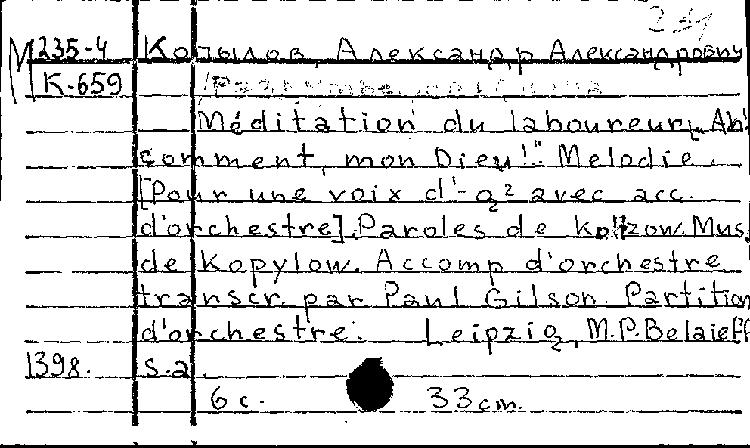 М 235-4 Копылов, Александр Александрович
К-659
Méditation du laboureur „Ah!
comment, mon Dieu!" Melodie.
[Pour une voix d'- avec acc.
d'orchestre]. Paroles de Koltzow. Mus.
de Kopylow. Accomp d'orchestre
transcr. par Paul Gilson. Partition
d'orchestre. Leipzig, M.P.Belaieff
1398. s.a.
6 с. 33 cm.